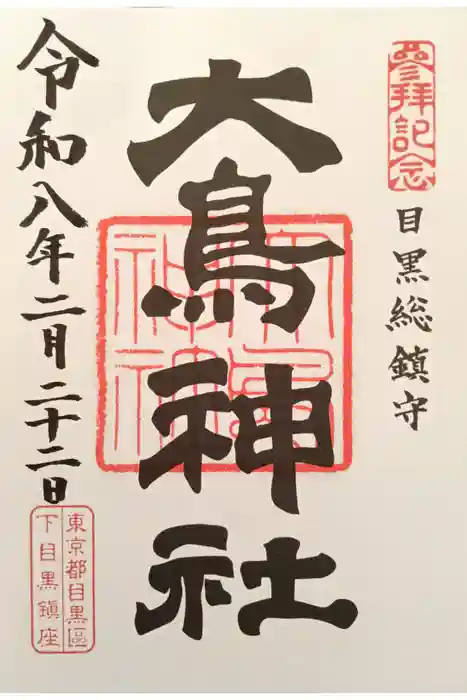 參拝記念
目黒総鎮守
大鳥神社
令和八年二月二十二日
東京都目黒區
下目黒鎮座